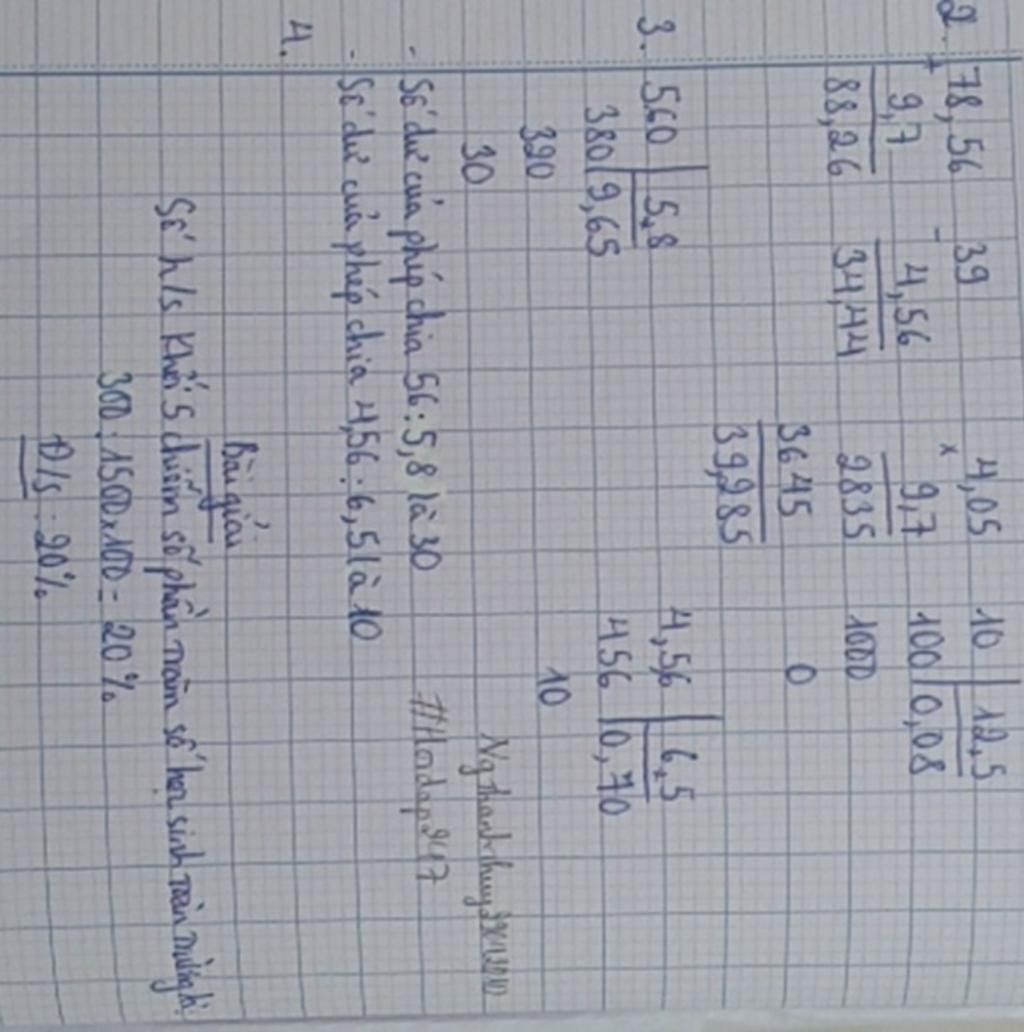 2. + 78,56 - 39 4,05 10 | 12,5
9,7 4,56 x 9,7 100 | 0,08
88,26 34,44 2835 1000
3645 0
39,285
3. 560 | 5,8 4,56 | 6,5
380 | 9,65 456 | 0,70
390 10
30
- Số dư của phép chia 56 : 5,8 là 30
#Hoidap247
- Số dư của phép chia 4,56 : 6,5 là 10
4.
Bài giải
Số h/s khối 5 chiếm số phần trăm số học sinh toàn trường là:
300 : 1500 x 100 = 20%
Đ/s : 20%